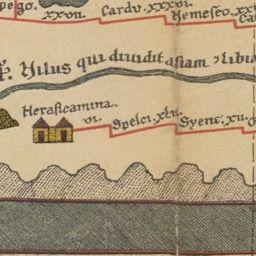 pego.
xxvii.
Cardu. xxxvi.
Nemeseo. xx
Ca
fl. Nilus qui diuidit asiam ⁊ libia
Heraſicamina.
vi.
Spelci. xlv.
Syene. xv.